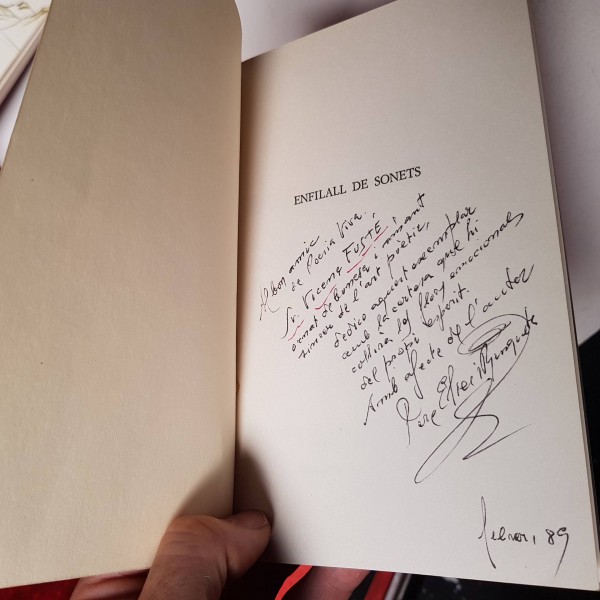 ENFILALL DE SONETS
Al bon amic
de Poesia Viva,
Sr. Vicenç FUSTÉ,
amant
sincer de l'art poètic,
dedico aquest exemplar
amb la certesa que hi
collirà les flors emocionals
del propi esperit.
Amb afecte de l'autor
Pere
febrer, 89